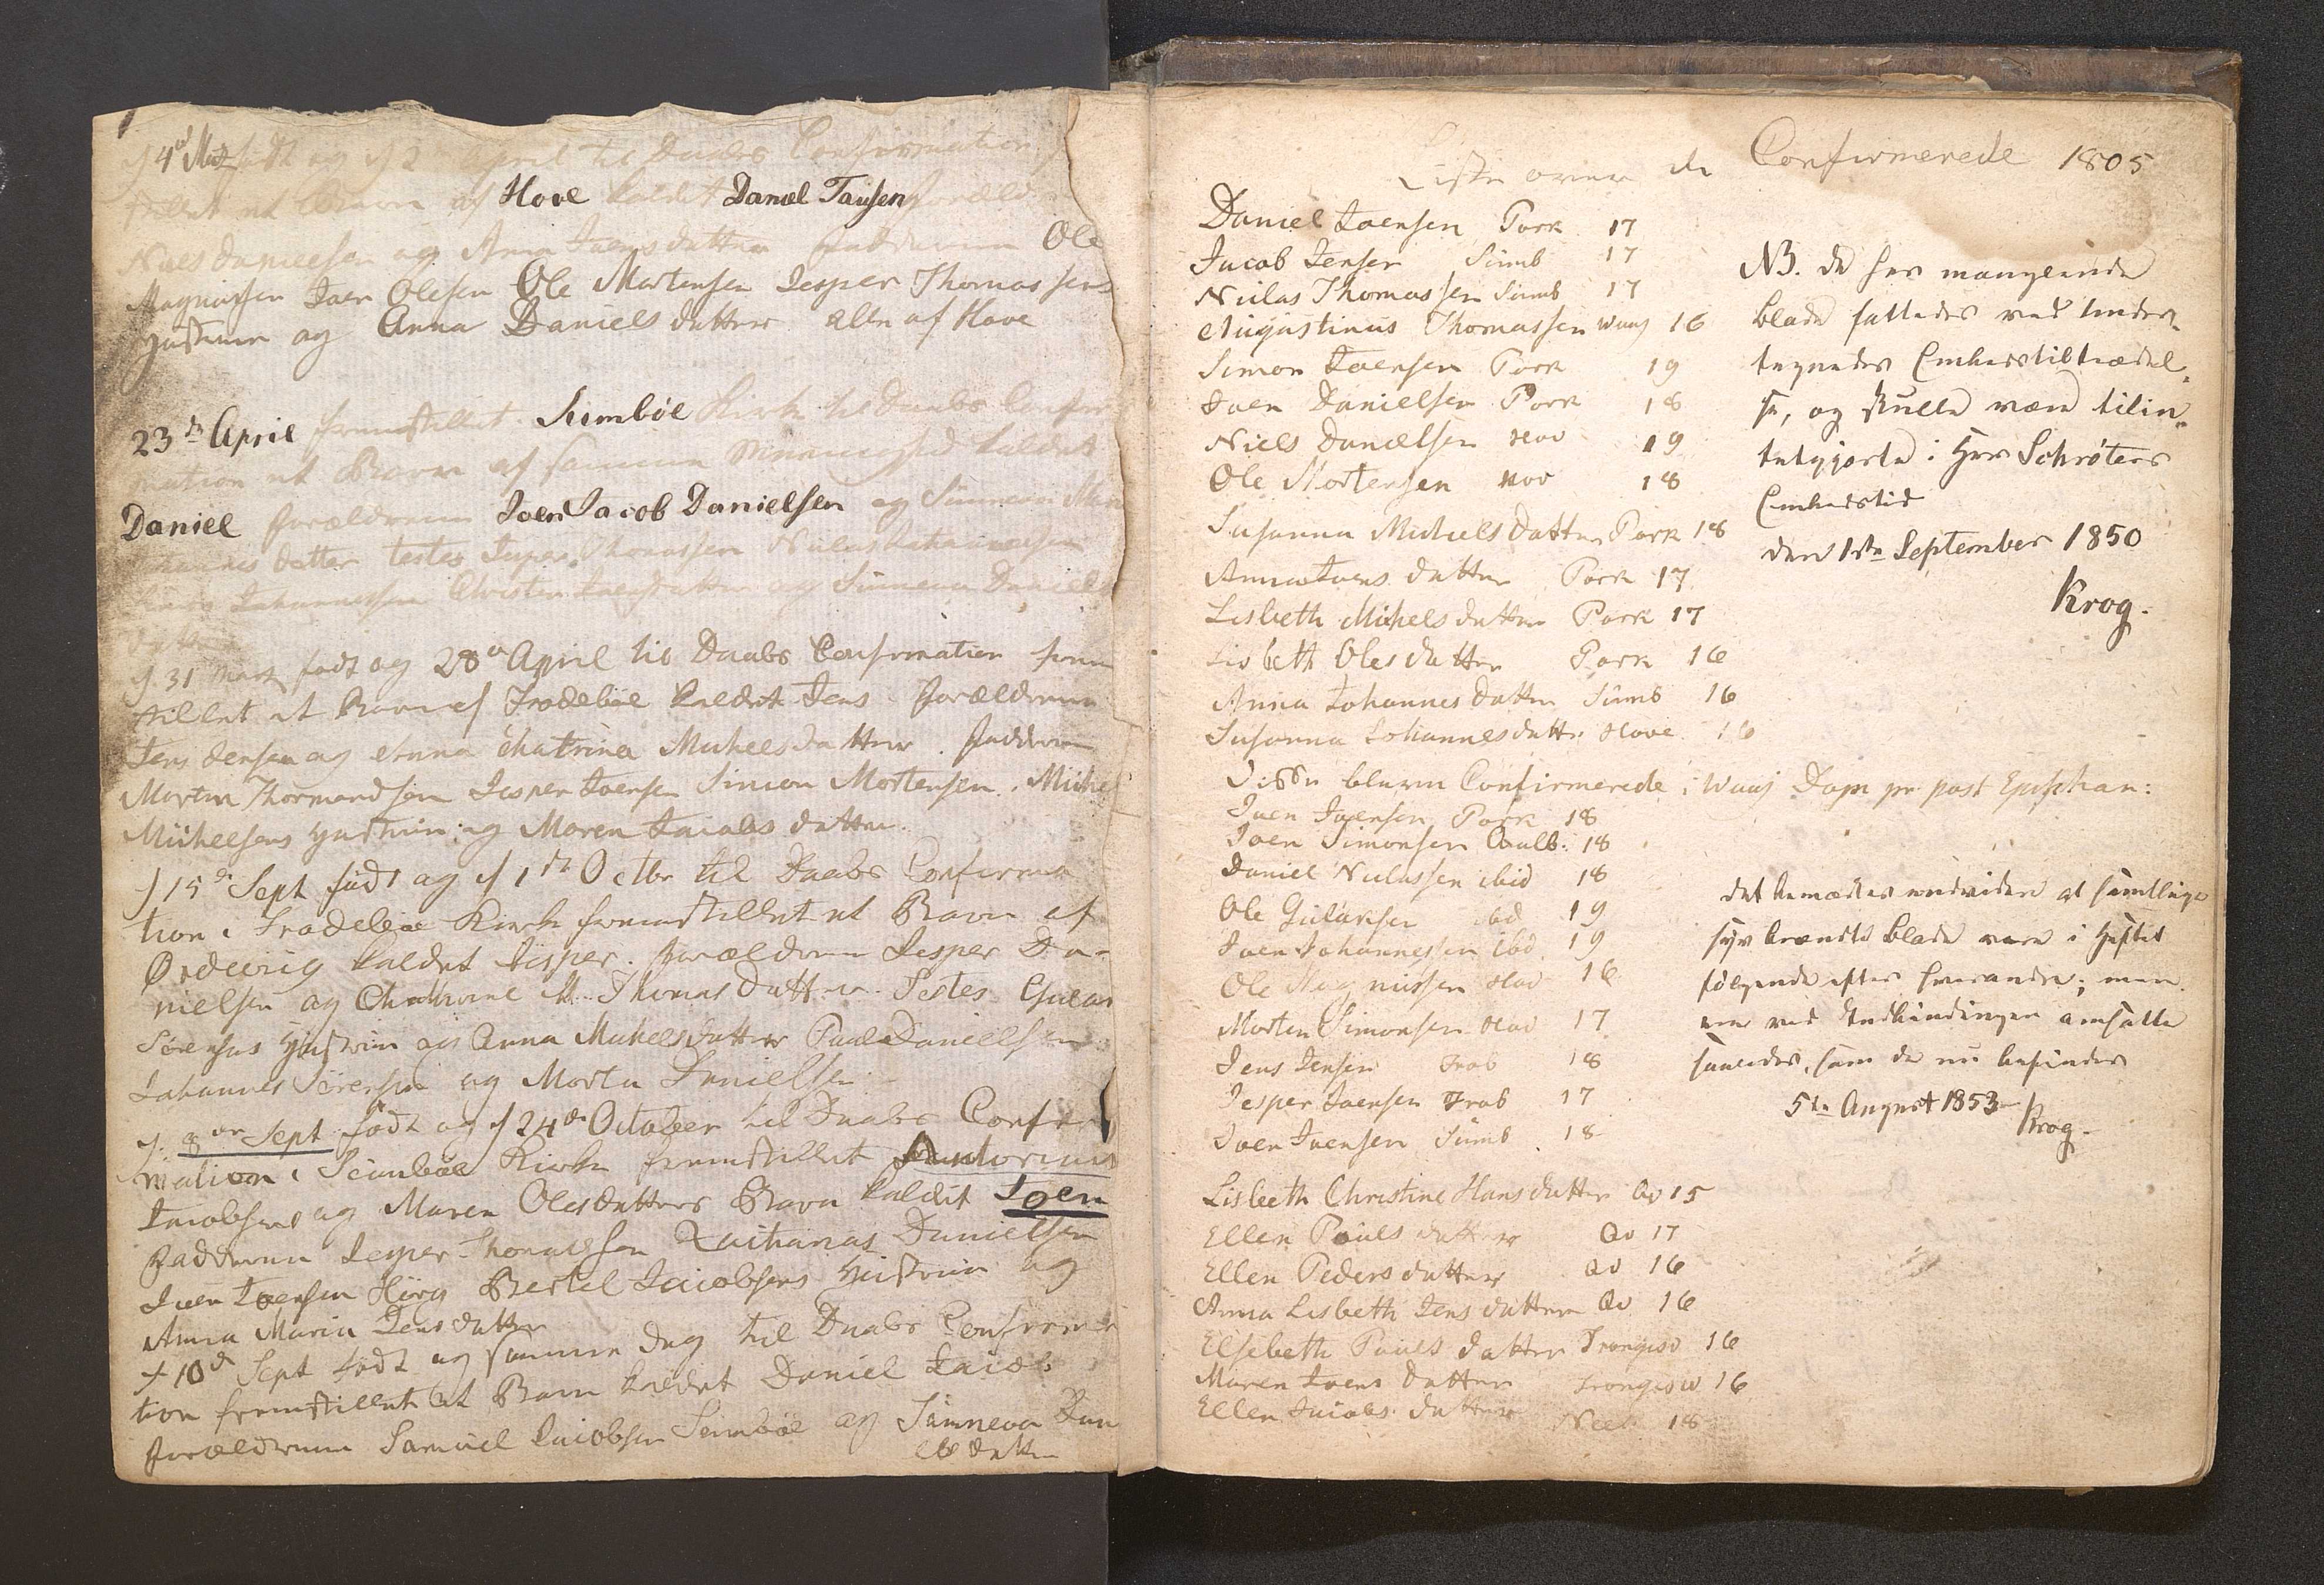 4de født og 2 April til Daabs Confirmation
af Hove kaldet Daniel Tausen
Niels Danielsen og Anna Joensdatter Fadderne Ole
Magnussen Joen Olesen Ole Mortensen Jesper Thomassens
Hustrue og Anna Daniels datter alle af Hove
23de April fremstillet Sumbøe Kirke til Daabs Confir
mation et Barn af samme kaldet
Daniel Forældrene Joen Jacob Danielsen og Sunneva
datter testes Jesper Thomassen Niclas
Johannessen Christen Joensdatter og Sunneva Daniels
datter
J. 31 Mart født og 28de April til Daabs Confirmation frem
stillet et Barn af Frodebøe kaldet Jens Forældrene
Jens Jensen og Anna Chatrina Michelsdatter. Fadderne
Morten Thormondsen Jesper Joensen Simon Mortensen. Michel
Michelsens Hustrue og Maren Jacobs datter.
J 15de Sept født og J 1ste Octbr til Daabs Confirma
tion i Frodebøe Kirke fremstillet et Barn af
Ordevig kaldet Jesper. Forældrene Jesper Da-
nielsen og Chatrine M. Thomasdatter. Testes
Sörensens Hustrue og Anna Michelsdatter Poul Danielsen
Johannes Sörensen og Morten Danielsen
J. 8de Sept født og J 24de October til Daabs Confir
mation i Sumbøe Kirke fremstillet
Jacobsens og Maren Olesdatters Barn kaldet Joen
Fadderne Jesper Thomassen Zacharias Danielsen
Joen Joensen Hörg Bertel Jacobsens Hustrue og
Anna Maria Jensdatter
J 10de Sept født og samme Dag til Daabs Confirma
tion fremstillet et Barn kaldet Daniel Jacob
Forældrene Samuel Jacobsen Sumbøe og Sunneva Dani
els datter
Liste over de Confirmerede 1805
Daniel Joensen Pork 17
Jacob Jensen Sumb 17
Niclas Thomassen Sumb 17
Augustinus Thomassen Waag 16
Simon Joensen Pork 19
Joen Danielsen Pork 18
Niels Danielsen Hov 19
Ole Mortensen Hov 18
Susanna Michels datter Pork 18
Anna Joens datter Pork 17
Lisbeth Michels datter Pork 17
Lisbeth Oles datter Pork 16
Anna Johannes datter Sumb 16
Susanna Johannesdatter Hove 16
Disse bleven Confirmerede i Waag Dom pr post Epiphan:
Joen Joensen Pork 18
Joen Simonsen Qvalb. 18
Daniel Niclassen ibid 18
Ole Gulaksen ibd 19
Joen Johannessen ibd 19
Ole Magnussen Hov 16
Morten Simonsen Hov 17
Jens Jensen Frob 18
Jesper Joensen Frob 17
Joen Joensen Sumb 18
Lisbeth Christine Hansdatter Qv 15
Ellen Pouls datter Qv 17
Ellen Peders datter Qv 16
Anna Lisbeth Jens datter Qv 16
Elsebeth Pouls datter Trongisv 16
Maren Joens datter Trongisv 16
Ellen Jacobs datter 18
NB. de her manglende
Blade fattedes ved Under-
tegnedes Embedstiltrædel-
se, og skulle være tilin-
tetgjorte i Herr Schrøters
Embedstid
den 1ste September 1850
Krog.
Det bemærkes endvidere at samtlige
syv brændte Blade vare i Heftet
følgende efter hverandre; men
ere ved Indbindingen omsatte
saaledes, som de nu befindes
5te August 1853
Krog.